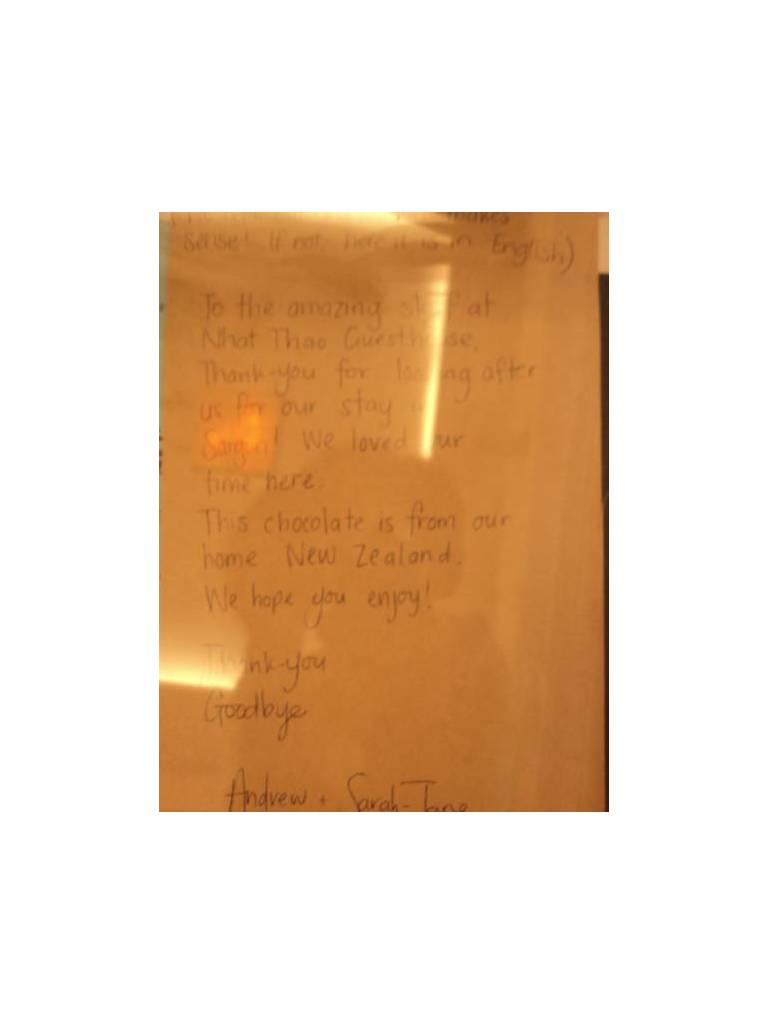 makes
sense! If not, here it is in English)
To the amazing staff at
Nhat Thao Guesthouse.
Thank-you for looking after
us for our stay
Saigon! We loved our
time here.
This chocolate is from our
home New Zealand.
We hope you enjoy!
Thank-you
Goodbye
Andrew + Sarah-Jane